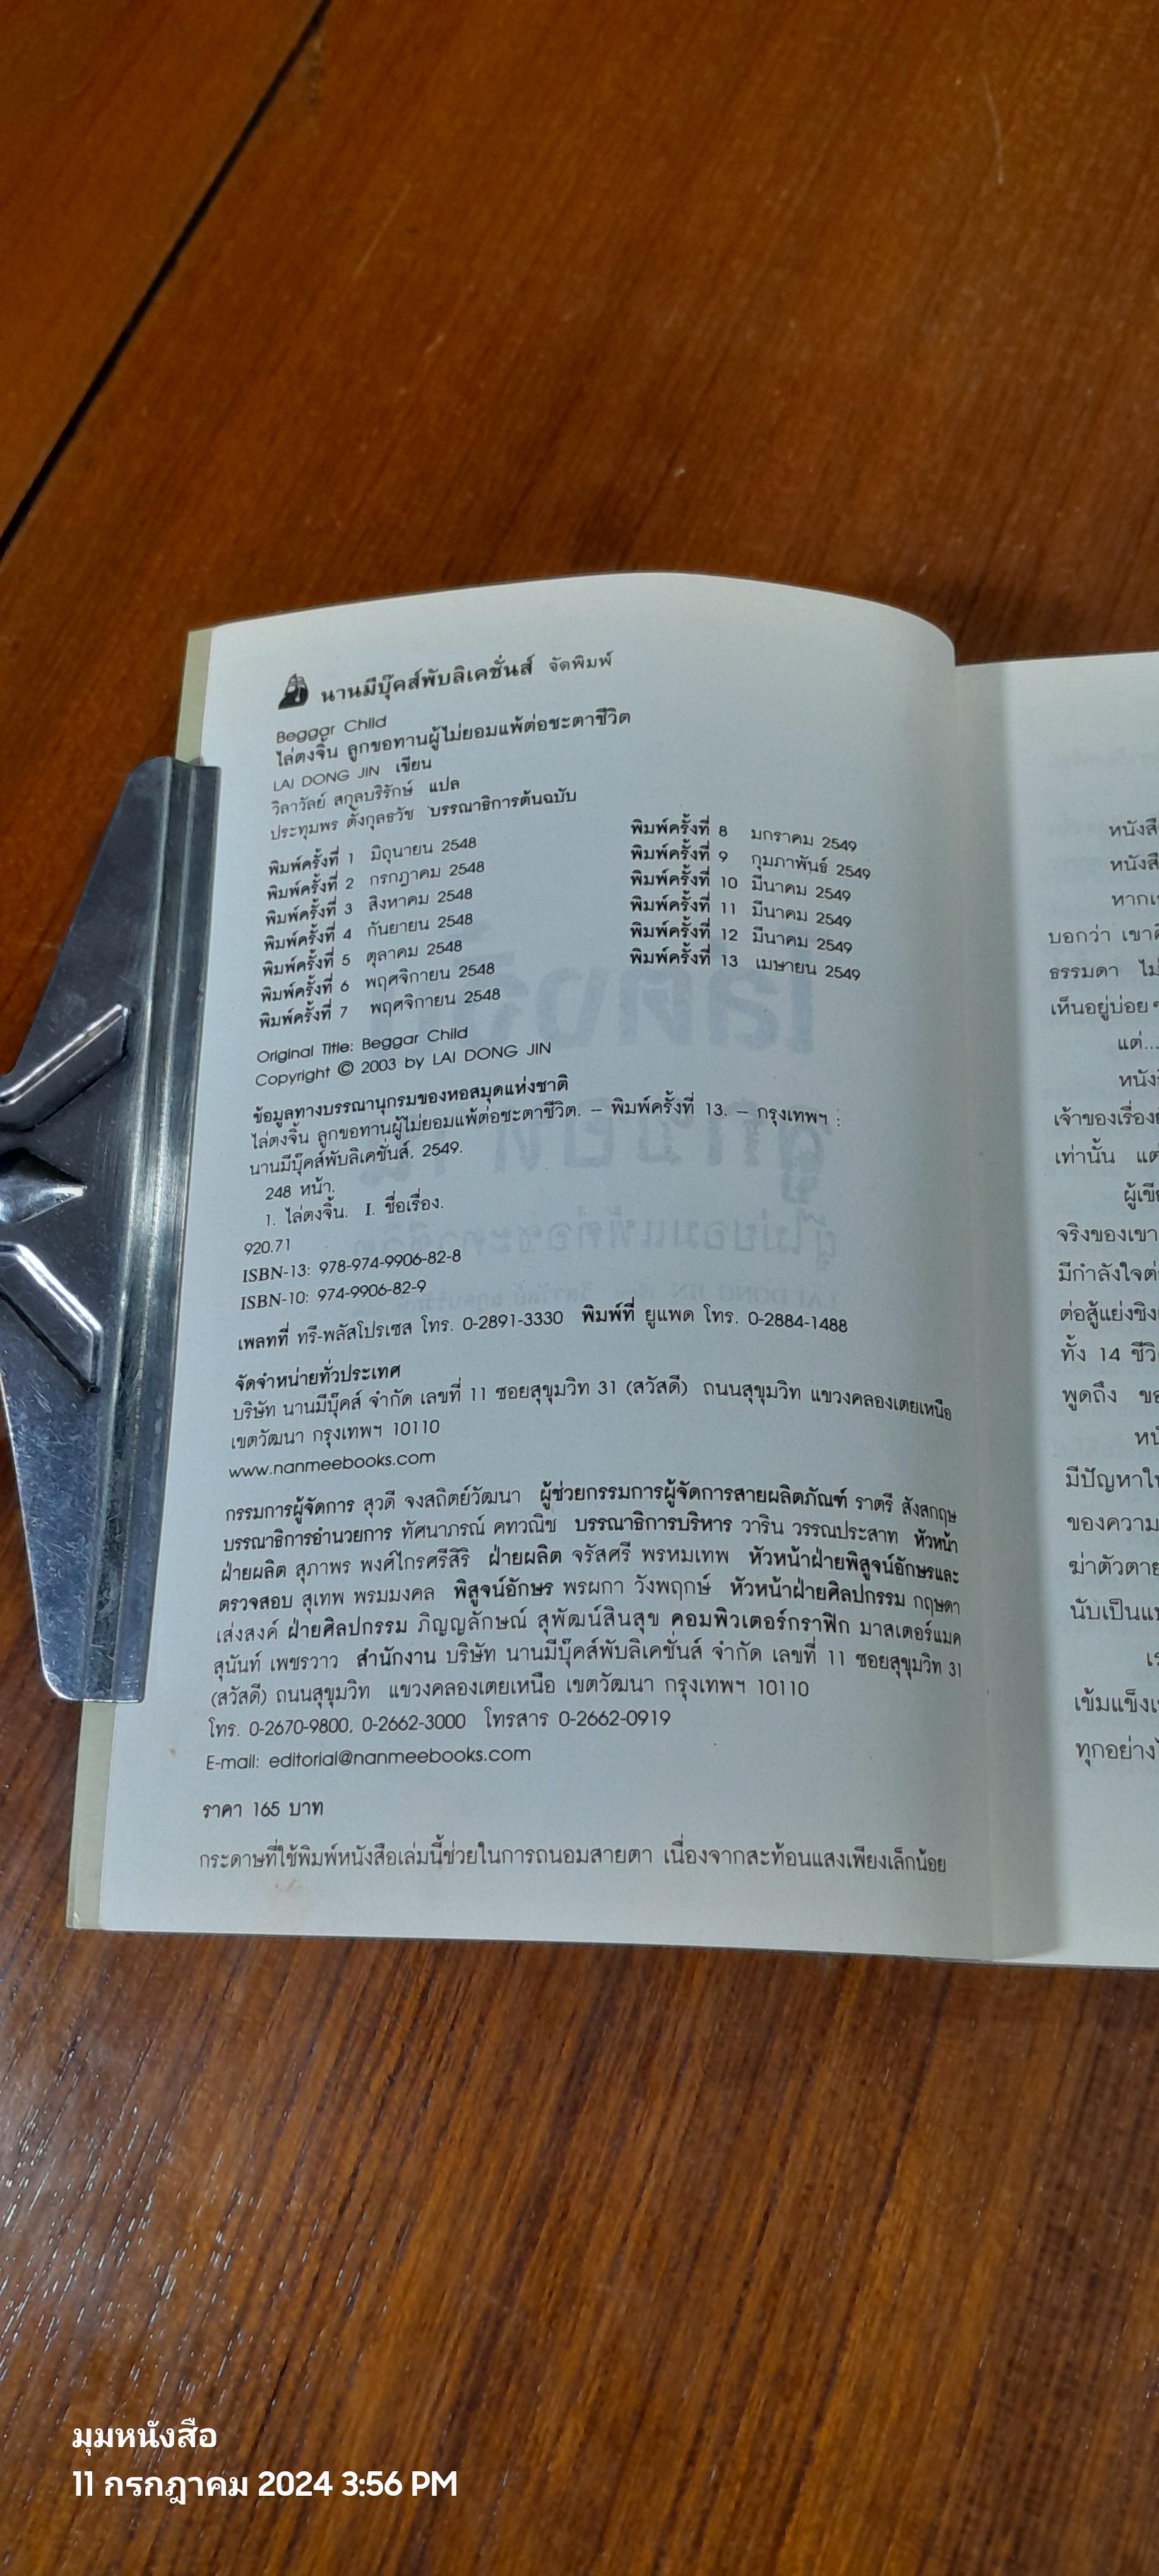 นานมีบุ๊คส์พับลิเคชั่นส์ จัดพิมพ์
Beggar Child
ไล่ตงจิ้น ลูกขอทานผู้ไม่ยอมแพ้ต่อชะตาชีวิต
LAI DONG JIN เขียน
วิลาวัลย์ สกุลบริรักษ์ แปล
ประทุมพร ตั้งกุลธวัช บรรณาธิการต้นฉบับ
พิมพ์ครั้งที่ 1 มิถุนายน 2548
พิมพ์ครั้งที่ 2 กรกฎาคม 2548
พิมพ์ครั้งที่ 3 สิงหาคม 2548
พิมพ์ครั้งที่ 4 กันยายน 2548
พิมพ์ครั้งที่ 5 ตุลาคม 2548
พิมพ์ครั้งที่ 6 พฤศจิกายน 2548
พิมพ์ครั้งที่ 7 พฤศจิกายน 2548
พิมพ์ครั้งที่ 8 มกราคม 2549
พิมพ์ครั้งที่ 9 กุมภาพันธ์ 2549
พิมพ์ครั้งที่ 10 มีนาคม 2549
พิมพ์ครั้งที่ 11 มีนาคม 2549
พิมพ์ครั้งที่ 12 มีนาคม 2549
พิมพ์ครั้งที่ 13 เมษายน 2549
Original Title: Beggar Child
Copyright © 2003 by LAI DONG JIN
ข้อมูลทางบรรณานุกรมของหอสมุดแห่งชาติ
ไล่ตงจิ้น ลูกขอทานผู้ไม่ยอมแพ้ต่อชะตาชีวิต. – พิมพ์ครั้งที่ 13. – กรุงเทพฯ :
นานมีบุ๊คส์พับลิเคชั่นส์, 2549.
248 หน้า.
1. ไล่ตงจิ้น. I. ชื่อเรื่อง.
920.71
ISBN-13: 978-974-9906-82-8
ISBN-10: 974-9906-82-9
เพลทที่ ทรี-พลัสโปรเซส โทร. 0-2891-3330 พิมพ์ที่ ยูแพด โทร. 0-2884-1488
จัดจำหน่ายทั่วประเทศ
บริษัท นานมีบุ๊คส์ จำกัด เลขที่ 11 ซอยสุขุมวิท 31 (สวัสดี) ถนนสุขุมวิท แขวงคลองเตยเหนือ
เขตวัฒนา กรุงเทพฯ 10110
www.nanmeebooks.com
กรรมการผู้จัดการ สุวดี จงสถิตย์วัฒนา ผู้ช่วยกรรมการผู้จัดการสายผลิตภัณฑ์ ราตรี สังสกฤษ
บรรณาธิการอำนวยการ ทัศนาภรณ์ คทวณิช บรรณาธิการบริหาร วาริน วรรณประสาท หัวหน้า
ฝ่ายผลิต สุภาพร พงศ์ไกรศรีสิริ ฝ่ายผลิต จรัสศรี พรหมเทพ หัวหน้าฝ่ายพิสูจน์อักษรและ
ตรวจสอบ สุเทพ พรมมงคล พิสูจน์อักษร พรผกา วังพฤกษ์ หัวหน้าฝ่ายศิลปกรรม กฤษดา
เส่งสงค์ ฝ่ายศิลปกรรม ภิญญลักษณ์ สุพัฒน์สินสุข คอมพิวเตอร์กราฟิก มาสเตอร์แมค
สุนันท์ เพชรวาว สำนักงาน บริษัท นานมีบุ๊คส์พับลิเคชั่นส์ จำกัด เลขที่ 11 ซอยสุขุมวิท 31
(สวัสดี) ถนนสุขุมวิท แขวงคลองเตยเหนือ เขตวัฒนา กรุงเทพฯ 10110
โทร. 0-2670-9800, 0-2662-3000 โทรสาร 0-2662-0919
E-mail: editorial@nanmeebooks.com
ราคา 165 บาท
กระดาษที่ใช้พิมพ์หนังสือเล่มนี้ช่วยในการถนอมสายตา เนื่องจากสะท้อนแสงเพียงเล็กน้อย
บอกว่า
ธรรมดา
เห็นอยู่บ่อยๆ
แต่...
เจ้าของเรื่อง
เท่านั้น
จริงของเขา
ทั้ง 14
พูดถึง
ของความ
ฆ่าตัวตาย
ทุกอย่าง
มุมหนังสือ
11 กรกฎาคม 2024 3:56 PM